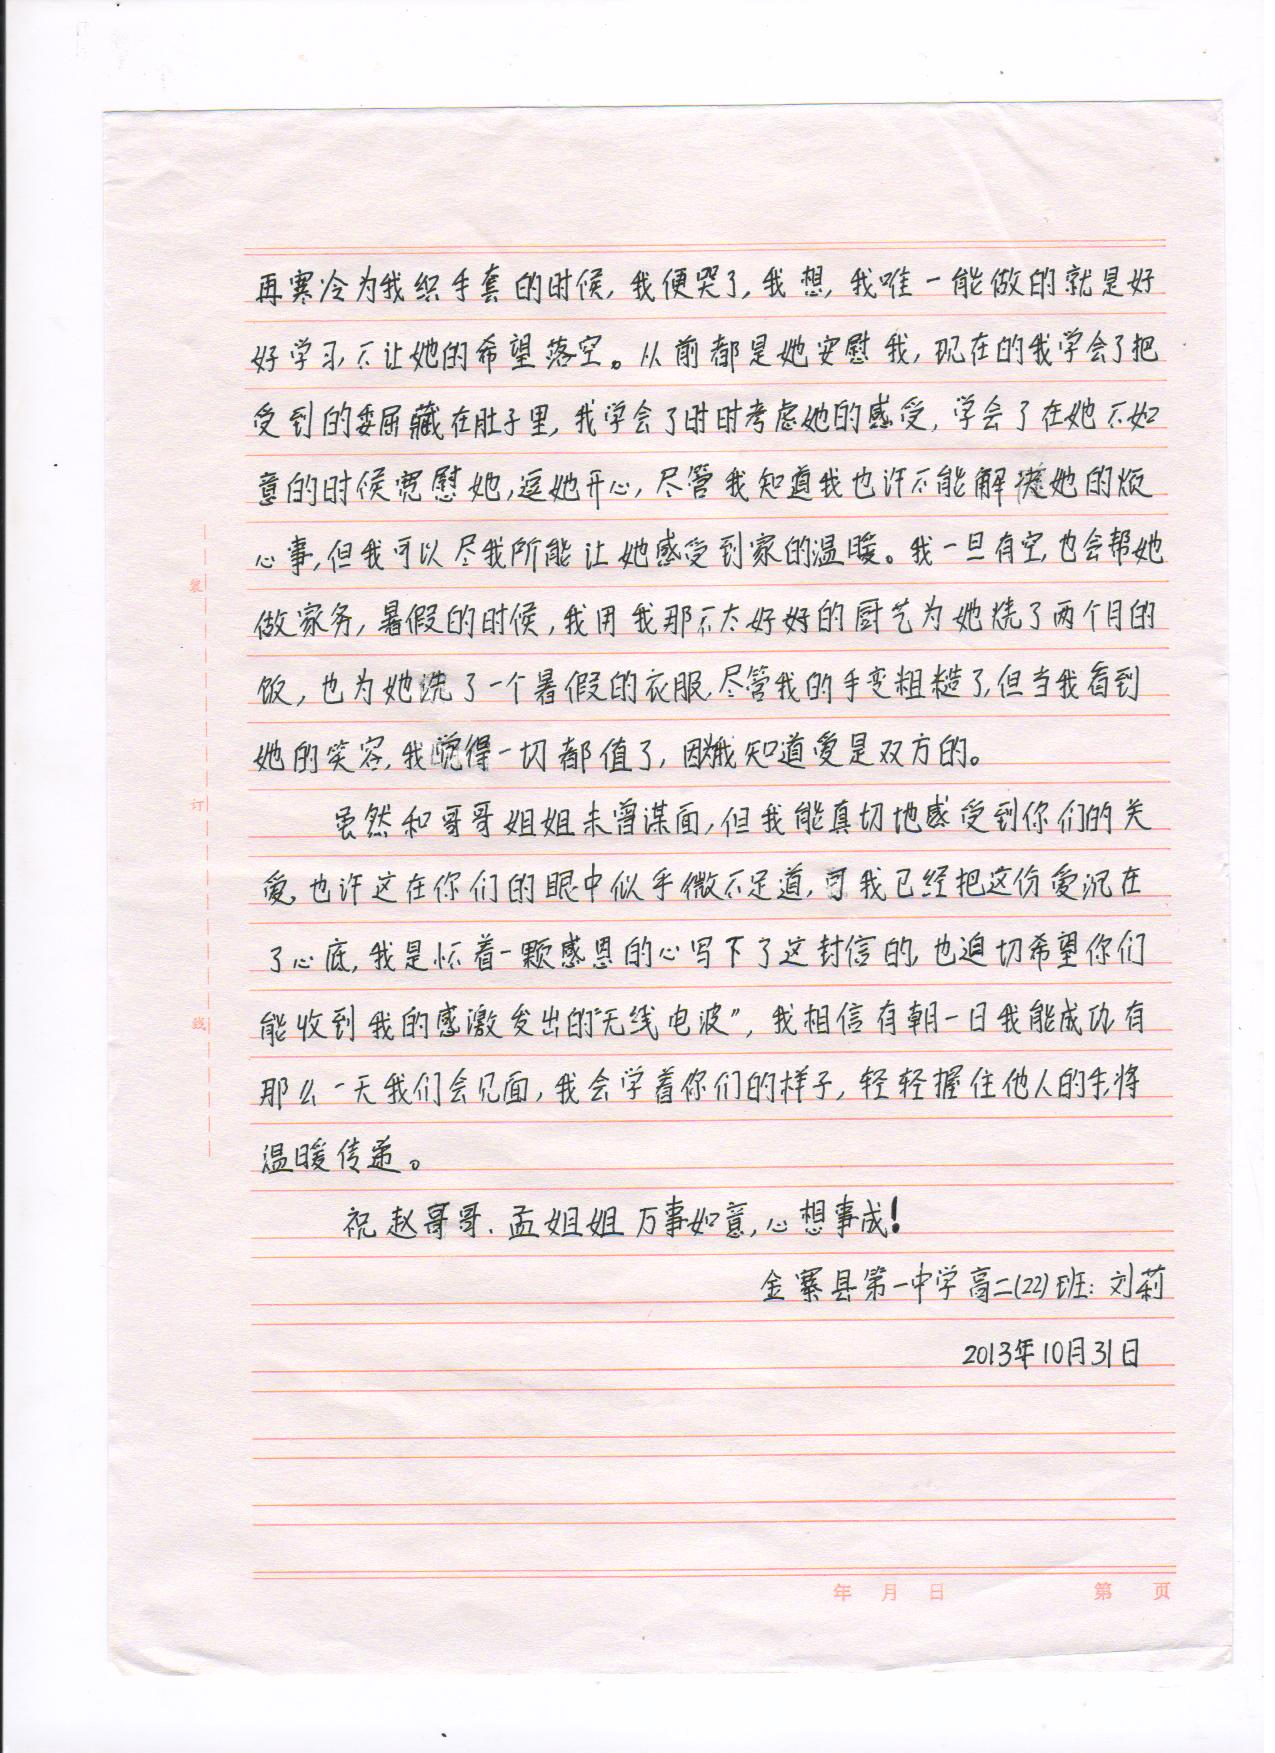 再寒冷为我织手套的时候,我便哭了,我想,我唯一能做的就是好
好学习,不让她的希望落空。从前都是她安慰我,现在的我学会了把
受到的委屈藏在肚子里,我学会了时时考虑她的感受,学会了在她不如
意的时候宽慰她,逗她开心,尽管我知道我也许不能解决她的烦
心事,但我可以尽我所能让她感受到家的温暖。我一旦有空,也会帮她
做家务,暑假的时候,我用我那不太好好的厨艺为她烧了两个月的
饭,也为她洗了一个暑假的衣服,尽管我的手变粗糙了,但当我看到
她的笑容,我觉得一切都值了,因为我知道爱是双方的。
虽然和哥哥姐姐未曾谋面,但我能真切地感受到你们的关
爱,也许这在你们的眼中似乎微不足道,可我已经把这份爱沉在
了心底,我是怀着一颗感恩的心写下了这封信的,也迫切希望你们
能收到我的感激发出的“无线电波”,我相信有朝一日我能成功,有
那么一天我们会见面,我会学着你们的样子,轻轻握住他人的手,将
温暖传递。
祝赵哥哥、孟姐姐万事如意,心想事成!
金寨县第一中学高二(22)班:刘莉
2013年10月31日
装
订
线
年 月 日 第 页